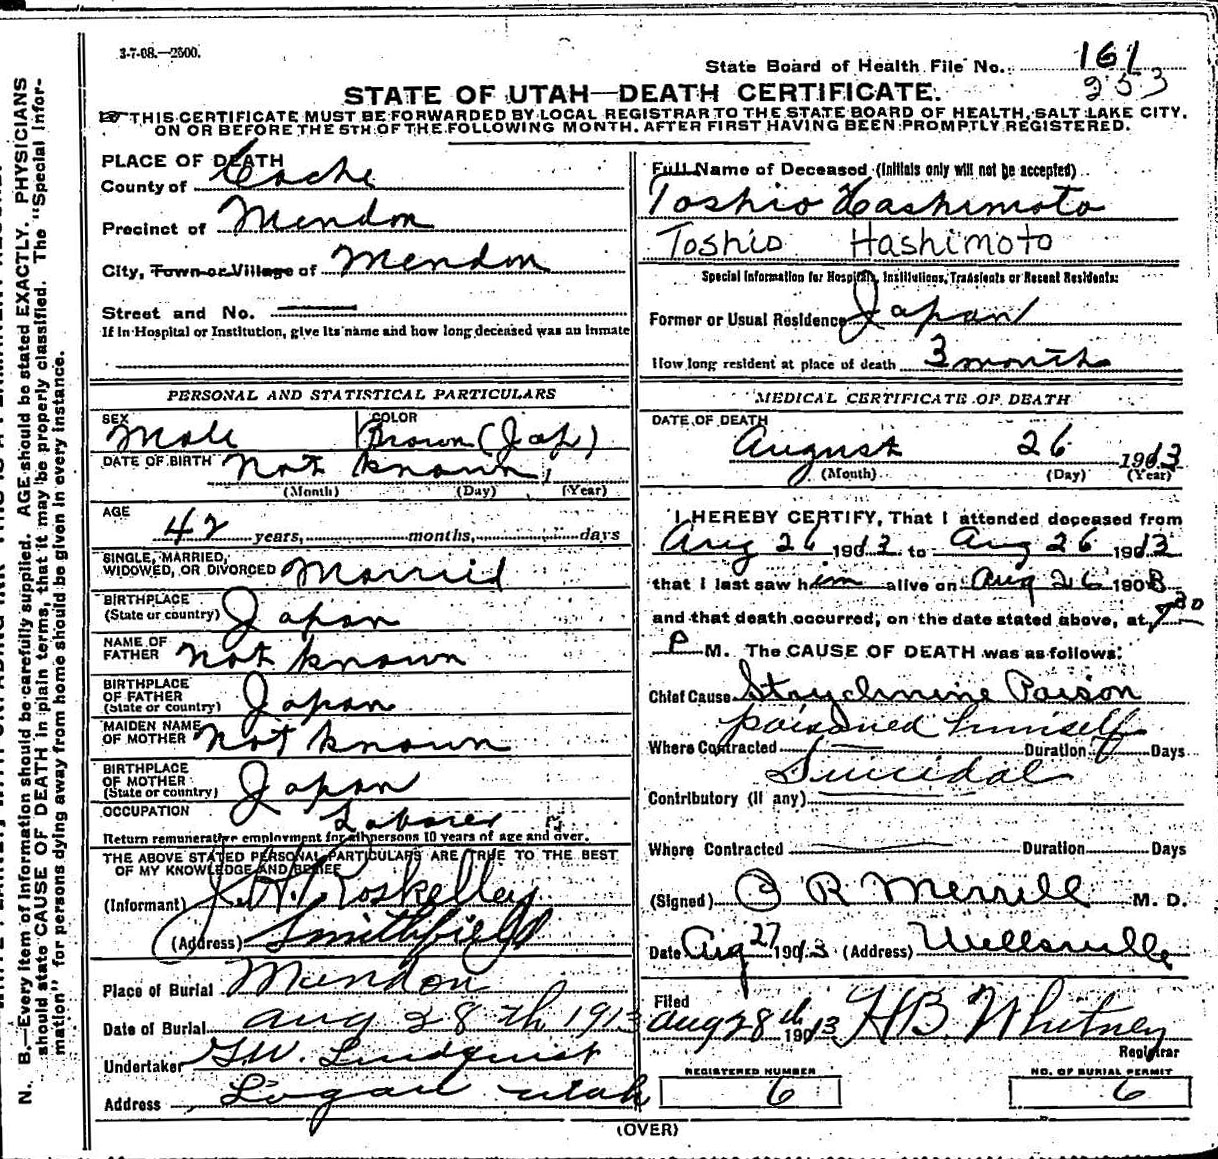 3-7-08.—2500.
State Board of Health File No. 161
253
STATE OF UTAH—DEATH CERTIFICATE.
THIS CERTIFICATE MUST BE FORWARDED BY LOCAL REGISTRAR TO THE STATE BOARD OF HEALTH, SALT LAKE CITY,
ON OR BEFORE THE 5TH OF THE FOLLOWING MONTH, AFTER FIRST HAVING BEEN PROMPTLY REGISTERED.
PLACE OF DEATH
County of Cache
Precinct of Mendon
City, Town or Village of Mendon
Street and No.
If in Hospital or Institution, give its name and how long deceased was an inmate
PERSONAL AND STATISTICAL PARTICULARS
SEX Male COLOR Brown (Jap)
DATE OF BIRTH Not known
(Month) (Day) (Year)
AGE
42 years, months, days
SINGLE, MARRIED,
WIDOWED, OR DIVORCED Married
BIRTHPLACE
(State or country) Japan
NAME OF
FATHER Not known
BIRTHPLACE
OF FATHER
(State or country) Japan
MAIDEN NAME
OF MOTHER Not known
BIRTHPLACE
OF MOTHER
(State or country) Japan
OCCUPATION Laborer
Return remunerative employment for all persons 10 years of age and over.
THE ABOVE STATED PERSONAL PARTICULARS ARE TRUE TO THE BEST
OF MY KNOWLEDGE AND BELIEF
(Informant) Roskelley
(Address) Smithfield
Place of Burial Mendon
Date of Burial Aug 28th 1913
Undertaker G.W. Lindquist
Address Logan Utah
Full Name of Deceased (Initials only will not be accepted)
Toshio Hashimoto
Toshio Hashimoto
Special Information for Hospitals, Institutions, Transients or Recent Residents:
Former or Usual Residence Japan
How long resident at place of death 3 month
MEDICAL CERTIFICATE OF DEATH
DATE OF DEATH
August 26 1913
(Month) (Day) (Year)
I HEREBY CERTIFY, That I attended deceased from
Aug 26 1913 to Aug 26 1913
that I last saw him alive on Aug 26 1903
and that death occurred, on the date stated above, at 7 30
P M. The CAUSE OF DEATH was as follows:
Chief Cause Stryclmine Poison
poisoned himself
Where Contracted Duration Days
Suicidal
Contributory (if any)
Where Contracted Duration Days
(Signed) O R Merrill M. D.
Date Aug 27 1913 (Address) Wellsville
Filed
Aug 28th 1913 H B. Whitney
Registrar
REGISTERED NUMBER
6
NO. OF BURIAL PERMIT
6
(OVER)
N. B.—Every item of information should be carefully supplied. AGE should be stated EXACTLY. PHYSICIANS
should state CAUSE OF DEATH in plain terms, that it may be properly classified. The "Special Infor-
mation" for persons dying away from home should be given in every instance.